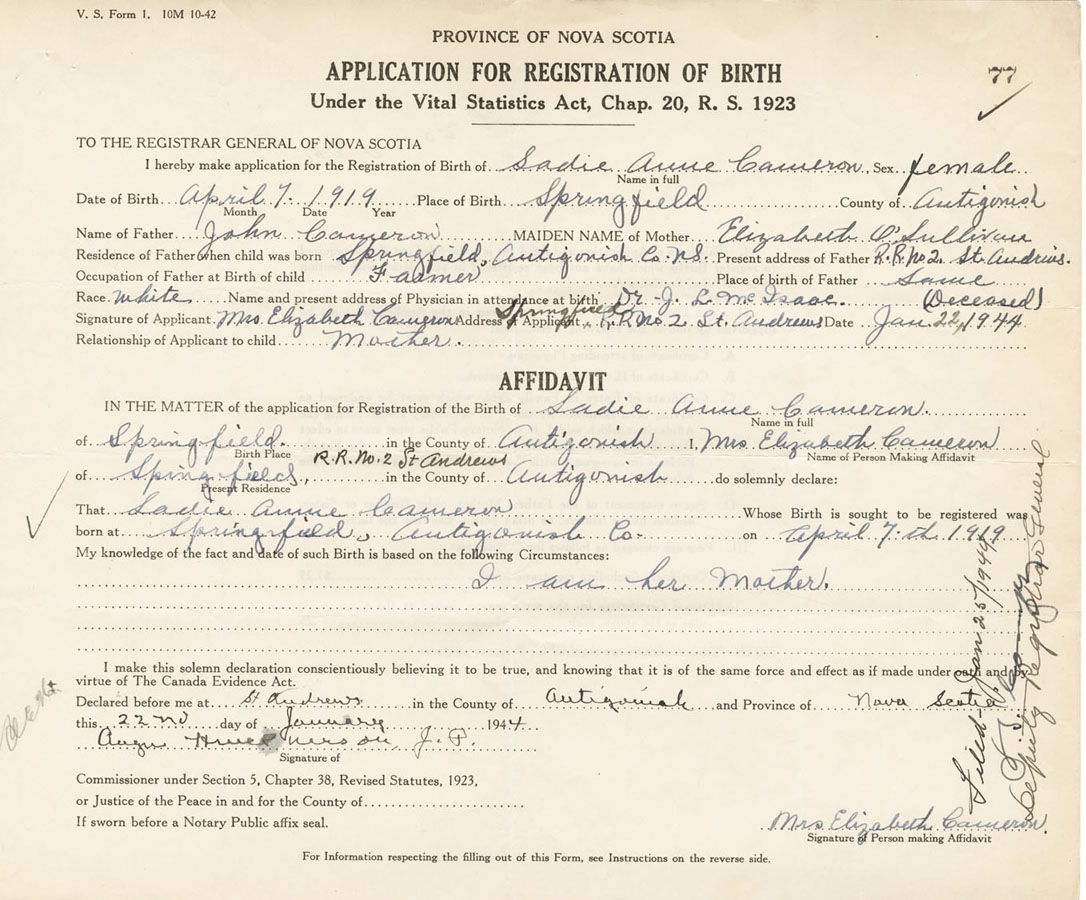 V. S. Form 1. 10M 10-42
PROVINCE OF NOVA SCOTIA
APPLICATION FOR REGISTRATION OF BIRTH
77
Under the Vital Statistics Act, Chap. 20, R. S. 1923
TO THE REGISTRAR GENERAL OF NOVA SCOTIA
I hereby make application for the Registration of Birth of Sadie Anne Cameron, Sex female
Name in full
Date of Birth April 7- 1919 Place of Birth Springfield County of Antigonish
Month Date Year
Name of Father John Cameron MAIDEN NAME of Mother Elizabeth O'Sullivan
Residence of Father when child was born Springfield, Antigonish Co. N.S. Present address of Father R.R. No 2. St. Andrews.
Occupation of Father at Birth of child Farmer Place of birth of Father Same
Race White Name and present address of Physician in attendance at birth Dr. J. L. McIsaac. (Deceased)
Signature of Applicant Mrs. Elizabeth Cameron Address of Applicant Springfield R.R No 2 St. Andrews Date Jan 22, 1944
Relationship of Applicant to child Mother.
AFFIDAVIT
IN THE MATTER of the application for Registration of the Birth of Sadie Anne Cameron.
Name in full
of Springfield. in the County of Antigonish I, Mrs Elizabeth Cameron
Birth Place R.R. No. 2 St Andrews Name of Person Making Affidavit
of Springfield, in the County of Antigonish do solemnly declare:
Present Residence
That Sadie Anne Cameron Whose Birth is sought to be registered was
born at Springfield, Antigonish Co- on April 7-th 1919
My knowledge of the fact and date of such Birth is based on the following Circumstances:
I am her Mother.
I make this solemn declaration conscientiously believing it to be true, and knowing that it is of the same force and effect as if made under oath and by
virtue of The Canada Evidence Act.
Declared before me at St Andrews in the County of Antigonish and Province of Nova Scotia
this 22 ND day of January 1944
Angus J. P.
Signature of
Commissioner under Section 5, Chapter 38, Revised Statutes, 1923,
or Justice of the Peace in and for the County of
If sworn before a Notary Public affix seal.
Mrs Elizabeth Cameron.
Signature of Person making Affidavit
For Information respecting the filling out of this Form, see Instructions on the reverse side.
Filed - Jan 25/1944
Deputy Registrar General